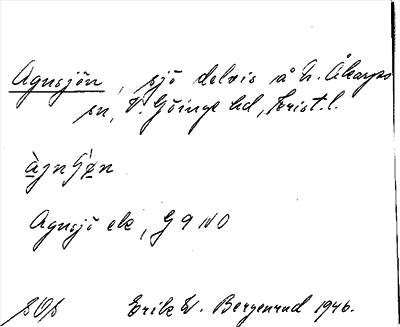 Agnsjön, sjö delvis å N. Åkarps
sn, V. Göinge hd, Krist. l.
Agnsjö ek, G 9 NO
Erik W. Bergenrud 1946.